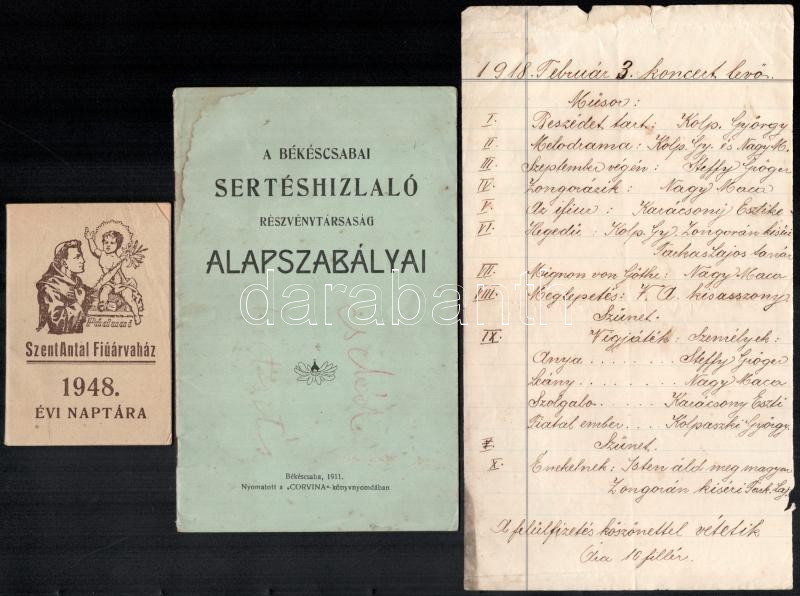 Páduai
SzentAntal Fiúárvaház
1948.
ÉVI NAPTÁRA
A BÉKÉSCSABAI
SERTÉSHIZLALÓ
RÉSZVÉNYTÁRSASÁG
ALAPSZABÁLYAI
Békéscsaba, 1911.
Nyomatott a „CORVINA"-könyvnyomdában.
1918. Február 3. koncert levő.
Műsor:
I. Beszédet tart: Kolp. György
II. Melodrama: Kolp. Gy. és Nagy M.
III. Szeptember végén: Steffy Gröger
IV. Zongorázik: Nagy Maca
V. Az ifiur: Karácsony Esztike
VI. Hegedü: Kolp. Gy. Zongorán kiséri
Tarhas Lajos tanár
VII. Mignon von Göthe: Nagy Maca
VIII. Meglepetés: F. A. kisasszony
Szünet.
IX. Vigjáték: Személyek:
Anya ....... Steffy Gröger
Leány ....... Nagy Maca
Szolgalo ..... Karácsony Eszti
Fiatal ember .... Kolpaszki György.
Szünet.
X. Énekelnek: Isten áld meg magyar
Zongorán kiséri
A felülfizetés köszönettel vétetik
Ára 10 fillér.
darabanth